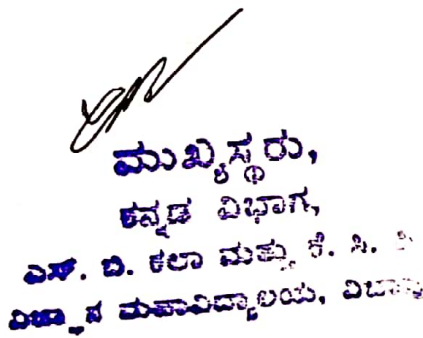 ಮುಖ್ಯಸ್ಥರು,
ಕನ್ನಡ ವಿಭಾಗ,
ಎಸ್. ಬಿ. ಕಲಾ ಮತ್ತು ಕೆ. ಸಿ. ಪಿ
ವಿಜ್ಞಾನ ಮಹಾವಿದ್ಯಾಲಯ,